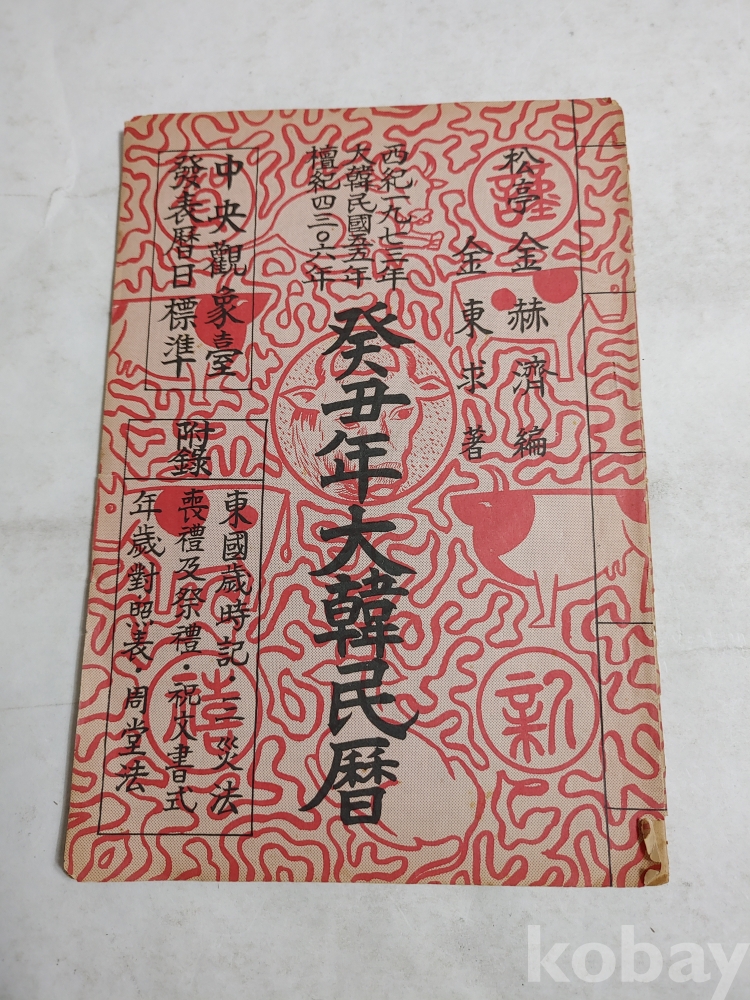 松亭 金赫濟 編
金東求 著
西紀一九七三年
大韓民國五五年
檀紀四三〇六年
癸丑年大韓民暦
中央觀象臺
發表暦日標準
附錄
東國歲時記·三災法
喪禮及祭禮·祝文書式
年歲對照表·周堂法
新
禧
kobay